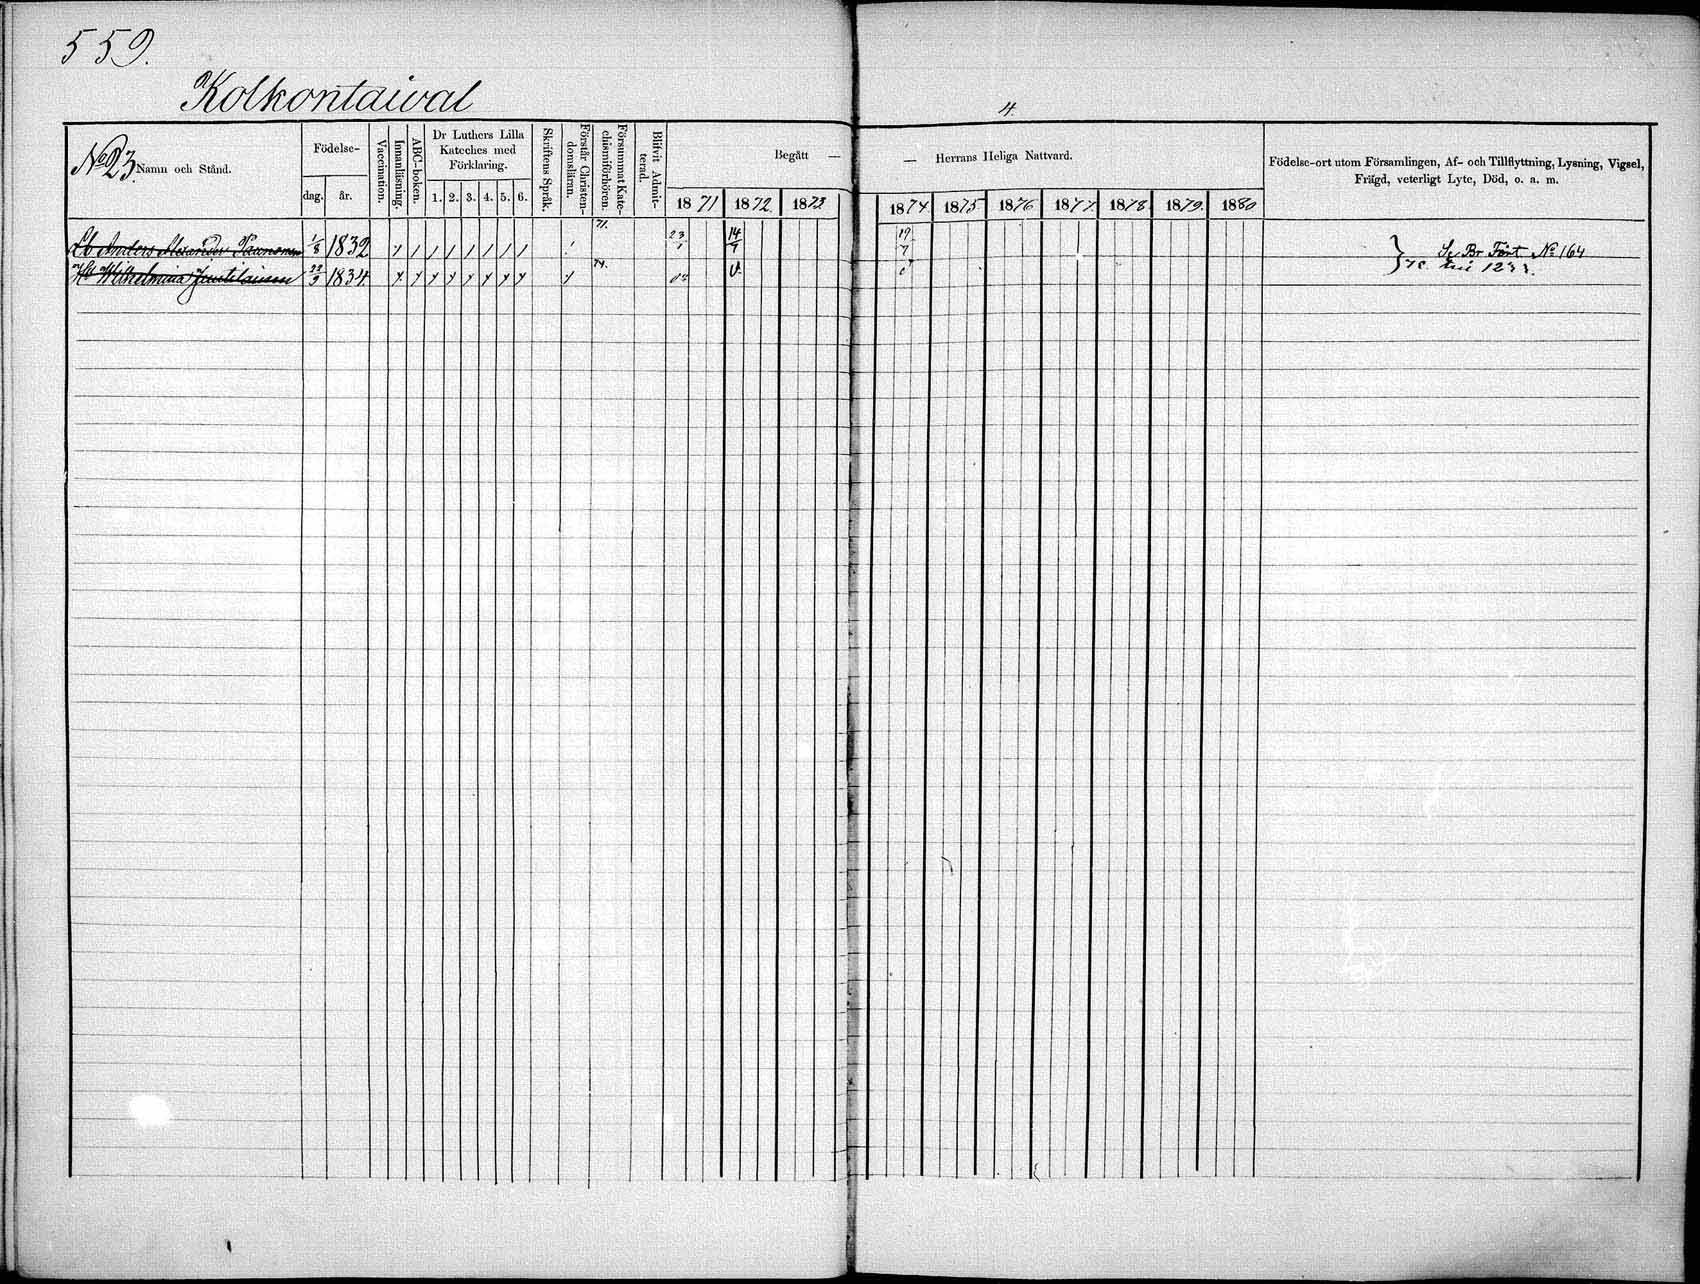 559.
Kolkontaival
4.
No 23. Namn och Stånd.
Födelse-
dag. år.
Vaccination.
Innanläsning.
ABC-boken.
Dr Luthers Lilla
Kateches med
Förklaring.
1. 2. 3. 4. 5. 6.
Skriftens Språk.
Förstår Christen-
domsläran.
Försummat Kate-
chismiförhören.
Blifvit Admit-
terad.
Begått —
— Herrans Heliga Nattvard.
1871 1872 1873 1874 1875 1876 1877. 1878. 1879. 1880
Födelse-ort utom Församlingen, Af- och Tillflyttning, Lysning, Vigsel,
Frägd, veterligt Lyte, Död, o. a. m.
Anders Alexander 1/8 1832 71. 23/1 14/7 19/7 No 164
Wilhelmina Juntilainen 22/3 1834. 74.